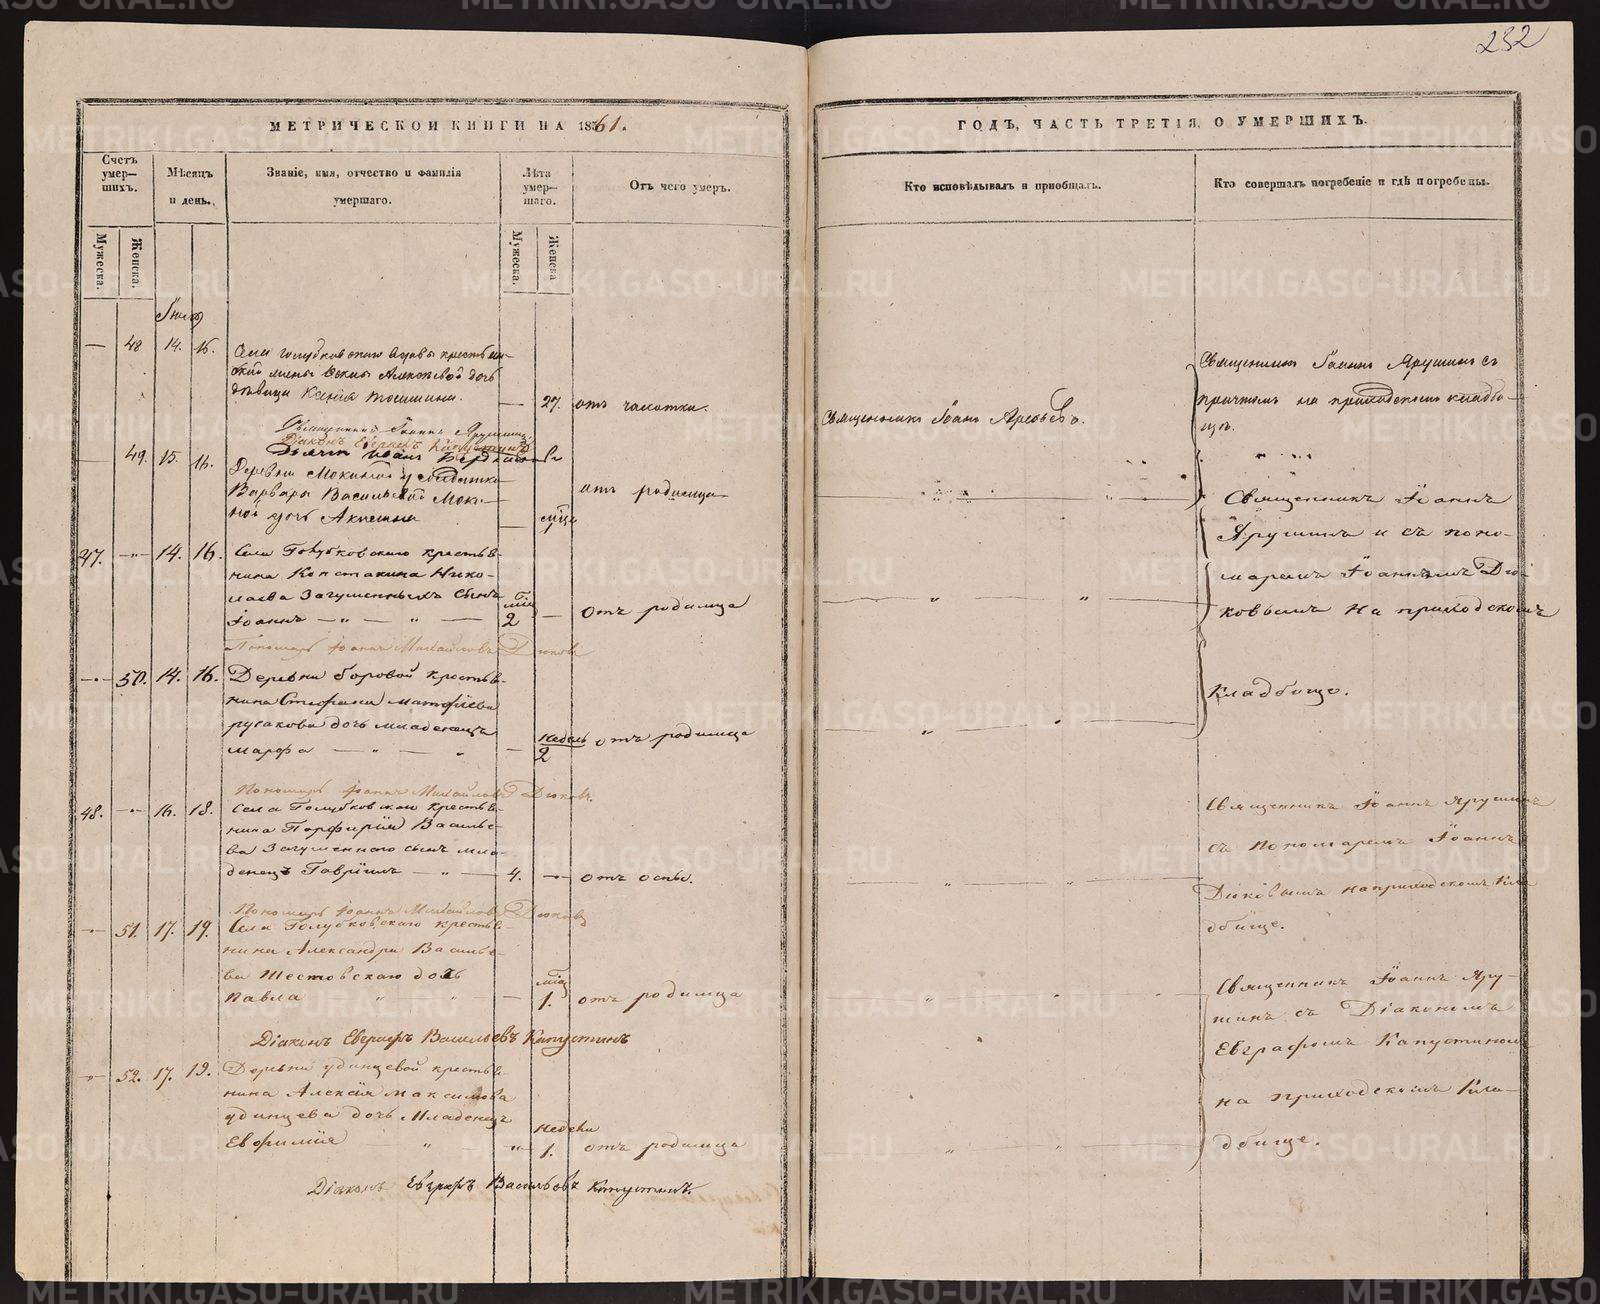 232
МЕТРИЧЕСКОЙ КНИГИ НА 1861.
ГОДЪ, ЧАСТЬ ТРЕТІЯ, О УМЕРШИХЪ.
Счетъ умер-шихъ.
Мужеска.
Женска.
Мѣсяцъ и день.
Званіе, имя, отчество и фамилія умершаго.
Лѣта умер-шаго.
Мужеска.
Женска
Отъ чего умеръ.
Кто исповѣдывалъ и пріобщалъ.
Кто совершалъ погребеніе и гдѣ погребены.
— 48 14. 16.
Села Голубковскаго
дочь
дѣвица Ксенія
— 27. отъ чахотки.
Священникъ Іоаннъ
Священникъ Іоаннъ Ярушинъ съ
причтомъ на приходскомъ кладбо-
щѣ.
Священникъ Іоаннъ Ярушинъ
Діаконъ Евграфъ Капустинъ
— 49. 15. 16.
Деревни Мокиной
Варвары Васильевой Моки-
ной дочь
— отъ родимца
Священникъ Іоаннъ
Ярушинъ и съ поно-
маремъ Іоанномъ Дю-
ковымъ на приходскомъ
кладбище.
47. —"— 14. 16.
Села Голубковскаго крестья-
нина Константина Нико-
лаева Загуменныхъ сынъ
Іоаннъ — " — " —
2 — отъ родимца
Пономарь Іоаннъ Михайловъ Дюковъ
50. 14. 16.
Деревни боровой крестья-
нина Стефана Матфѣева
русакова дочь младенецъ
марфа — " — "
— недель 2 отъ родимца
Пономарь Іоаннъ Михайловъ Дюковъ.
48. —"— 16. 18.
Села Голубковскаго крестья-
нина Порфирія Василье-
ва Загуменнаго сынъ мла-
денецъ Гавріилъ — " —
4. —"— отъ оспы.
Священникъ Іоаннъ Ярушинъ
съ пономаремъ Іоанн
Дюковымъ на приходскомъ кла
дбище.
Пономарь Іоаннъ Михайловъ Дюковъ
51. 17. 19.
Села Голубковскаго крестья-
нина Александра Василье-
ва Шестовскаго дочь
Павла " "
— 1. отъ родимца
Священникъ Іоаннъ Яру-
шинъ съ Діакономъ
Евграфомъ Капустином
на приходскомъ кла-
дбище.
Діаконъ Евграфъ Васильевъ Капустинъ
52. 17. 19.
Деревни удинцевой крестья-
нина Алексія максимова
удинцева дочь Младенец
Евфимія — " "
недели 1. отъ родимца
Діаконъ Евграфъ Васильевъ Капустинъ.
METRIKI.GASO-URAL.RU